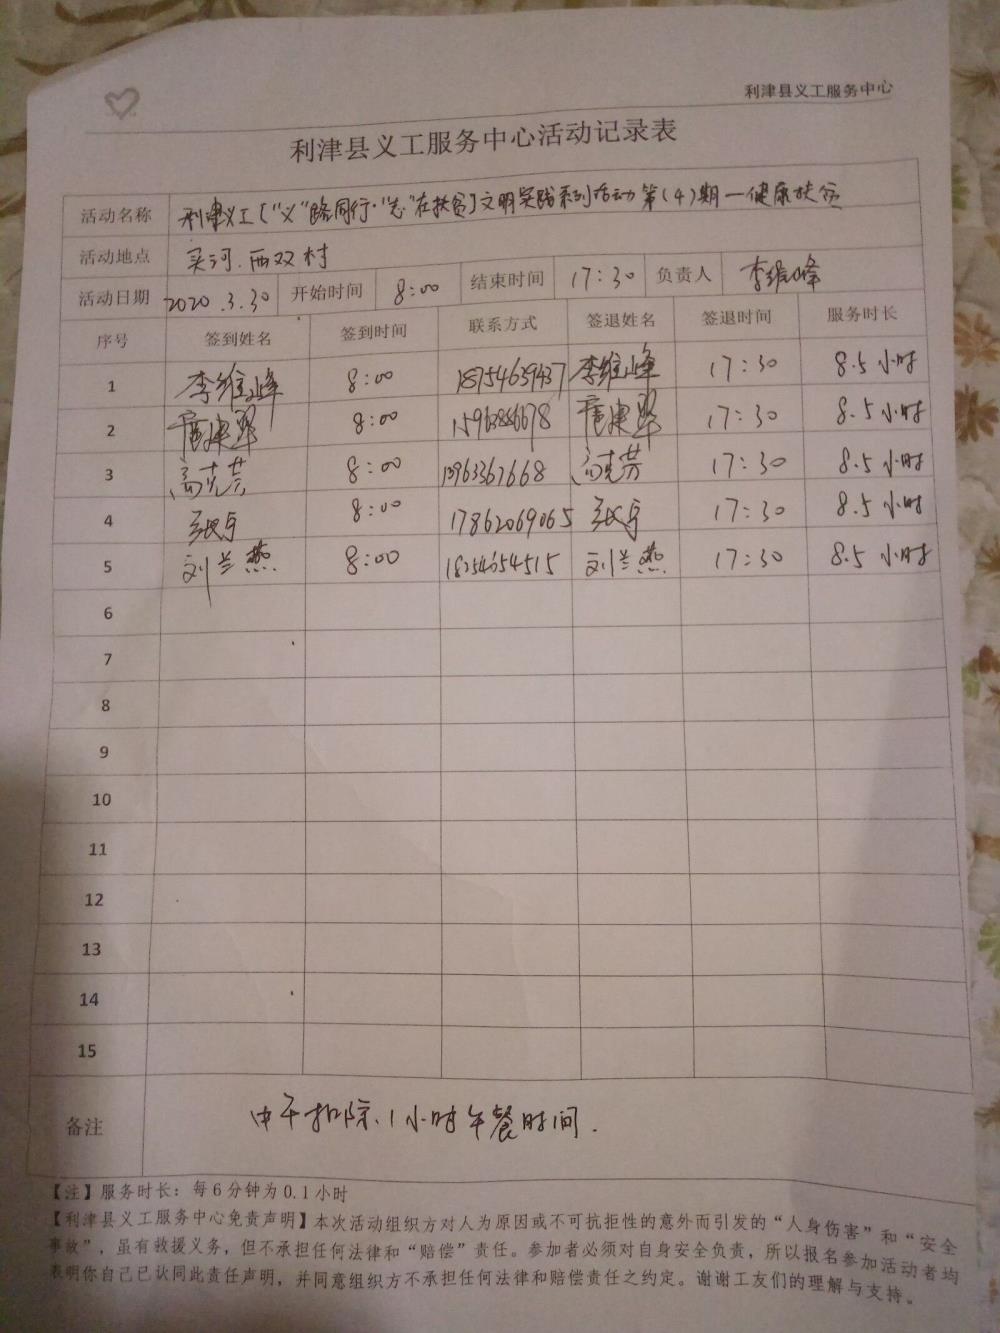 利津县义工服务中心
利津县义工服务中心活动记录表
活动名称 利津义工【“义”路同行·“志”在扶贫】文明实践系列活动第(4)期—健康扶贫
活动地点 买河.西双村
活动日期 2020.3.30 开始时间 8:00 结束时间 17:30 负责人 李维峰
序号 签到姓名 签到时间 联系方式 签退姓名 签退时间 服务时长
1 李维峰 8:00 18754639437 李维峰 17:30 8.5小时
2 8:00 17:30 8.5小时
3 高克芳 8:00 13963367668 高克芳 17:30 8.5小时
4 8:00 17862069065 17:30 8.5小时
5 刘兰燕 8:00 18254654515 刘兰燕 17:30 8.5小时
6
7
8
9
10
11
12
13
14
15
备注 中午扣除1小时午餐时间.
【注】服务时长：每6分钟为0.1小时
【利津县义工服务中心免责声明】本次活动组织方对人为原因或不可抗拒性的意外而引发的“人身伤害”和“安全
事故”，虽有救援义务，但不承担任何法律和“赔偿”责任。参加者必须对自身安全负责，所以报名参加活动者均
表明你自己已认同此责任声明，并同意组织方不承担任何法律和赔偿责任之约定。谢谢工友们的理解与支持。